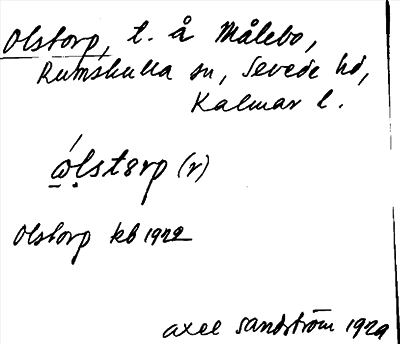 Olstorp, t. å Målebo,
Rumskulla sn, Sevede hd,
Kalmar l.
ώlstərp (r)
Olstorp kb 1929
Axel Sandström 1929